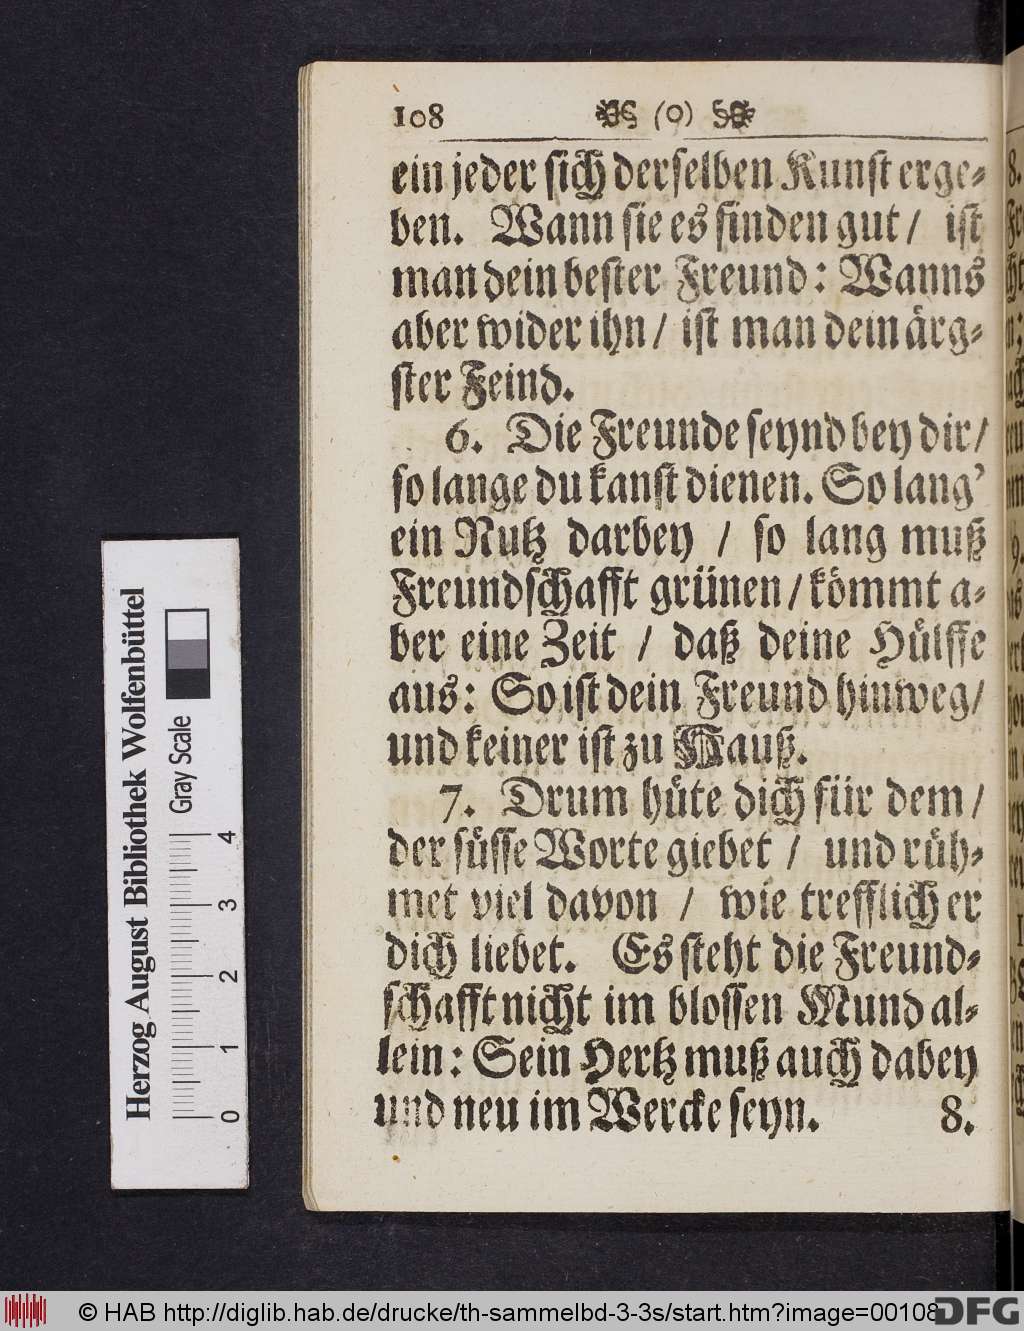 108 (o)
ein jeder sich derselben Kunst erge-
ben. Wann sie es finden gut / ist
man dein bester Freund: Wanns
aber wider ihn / ist man dein ärg-
ster Feind.
6. Die Freunde seynd bey dir /
so lange du kanst dienen. So lang'
ein Nutz darbey / so lang muß
Freundschafft grünen / kömmt a-
ber eine Zeit / daß deine Hülffe
aus: So ist dein Freund hinweg /
und keiner ist zu Hauß.
7. Drum hüte dich für dem /
der süsse Worte giebet / und rüh-
met viel davon / wie trefflich er
dich liebet. Es steht die Freund-
schafft nicht im blossen Mund al-
lein: Sein Hertz muß auch dabey
und neu im Wercke seyn. 8.
Herzog August Bibliothek Wolfenbüttel
Gray Scale
0 1 2 3 4
© HAB http://diglib.hab.de/drucke/th-sammelbd-3-3s/start.htm?image=00108
DFG